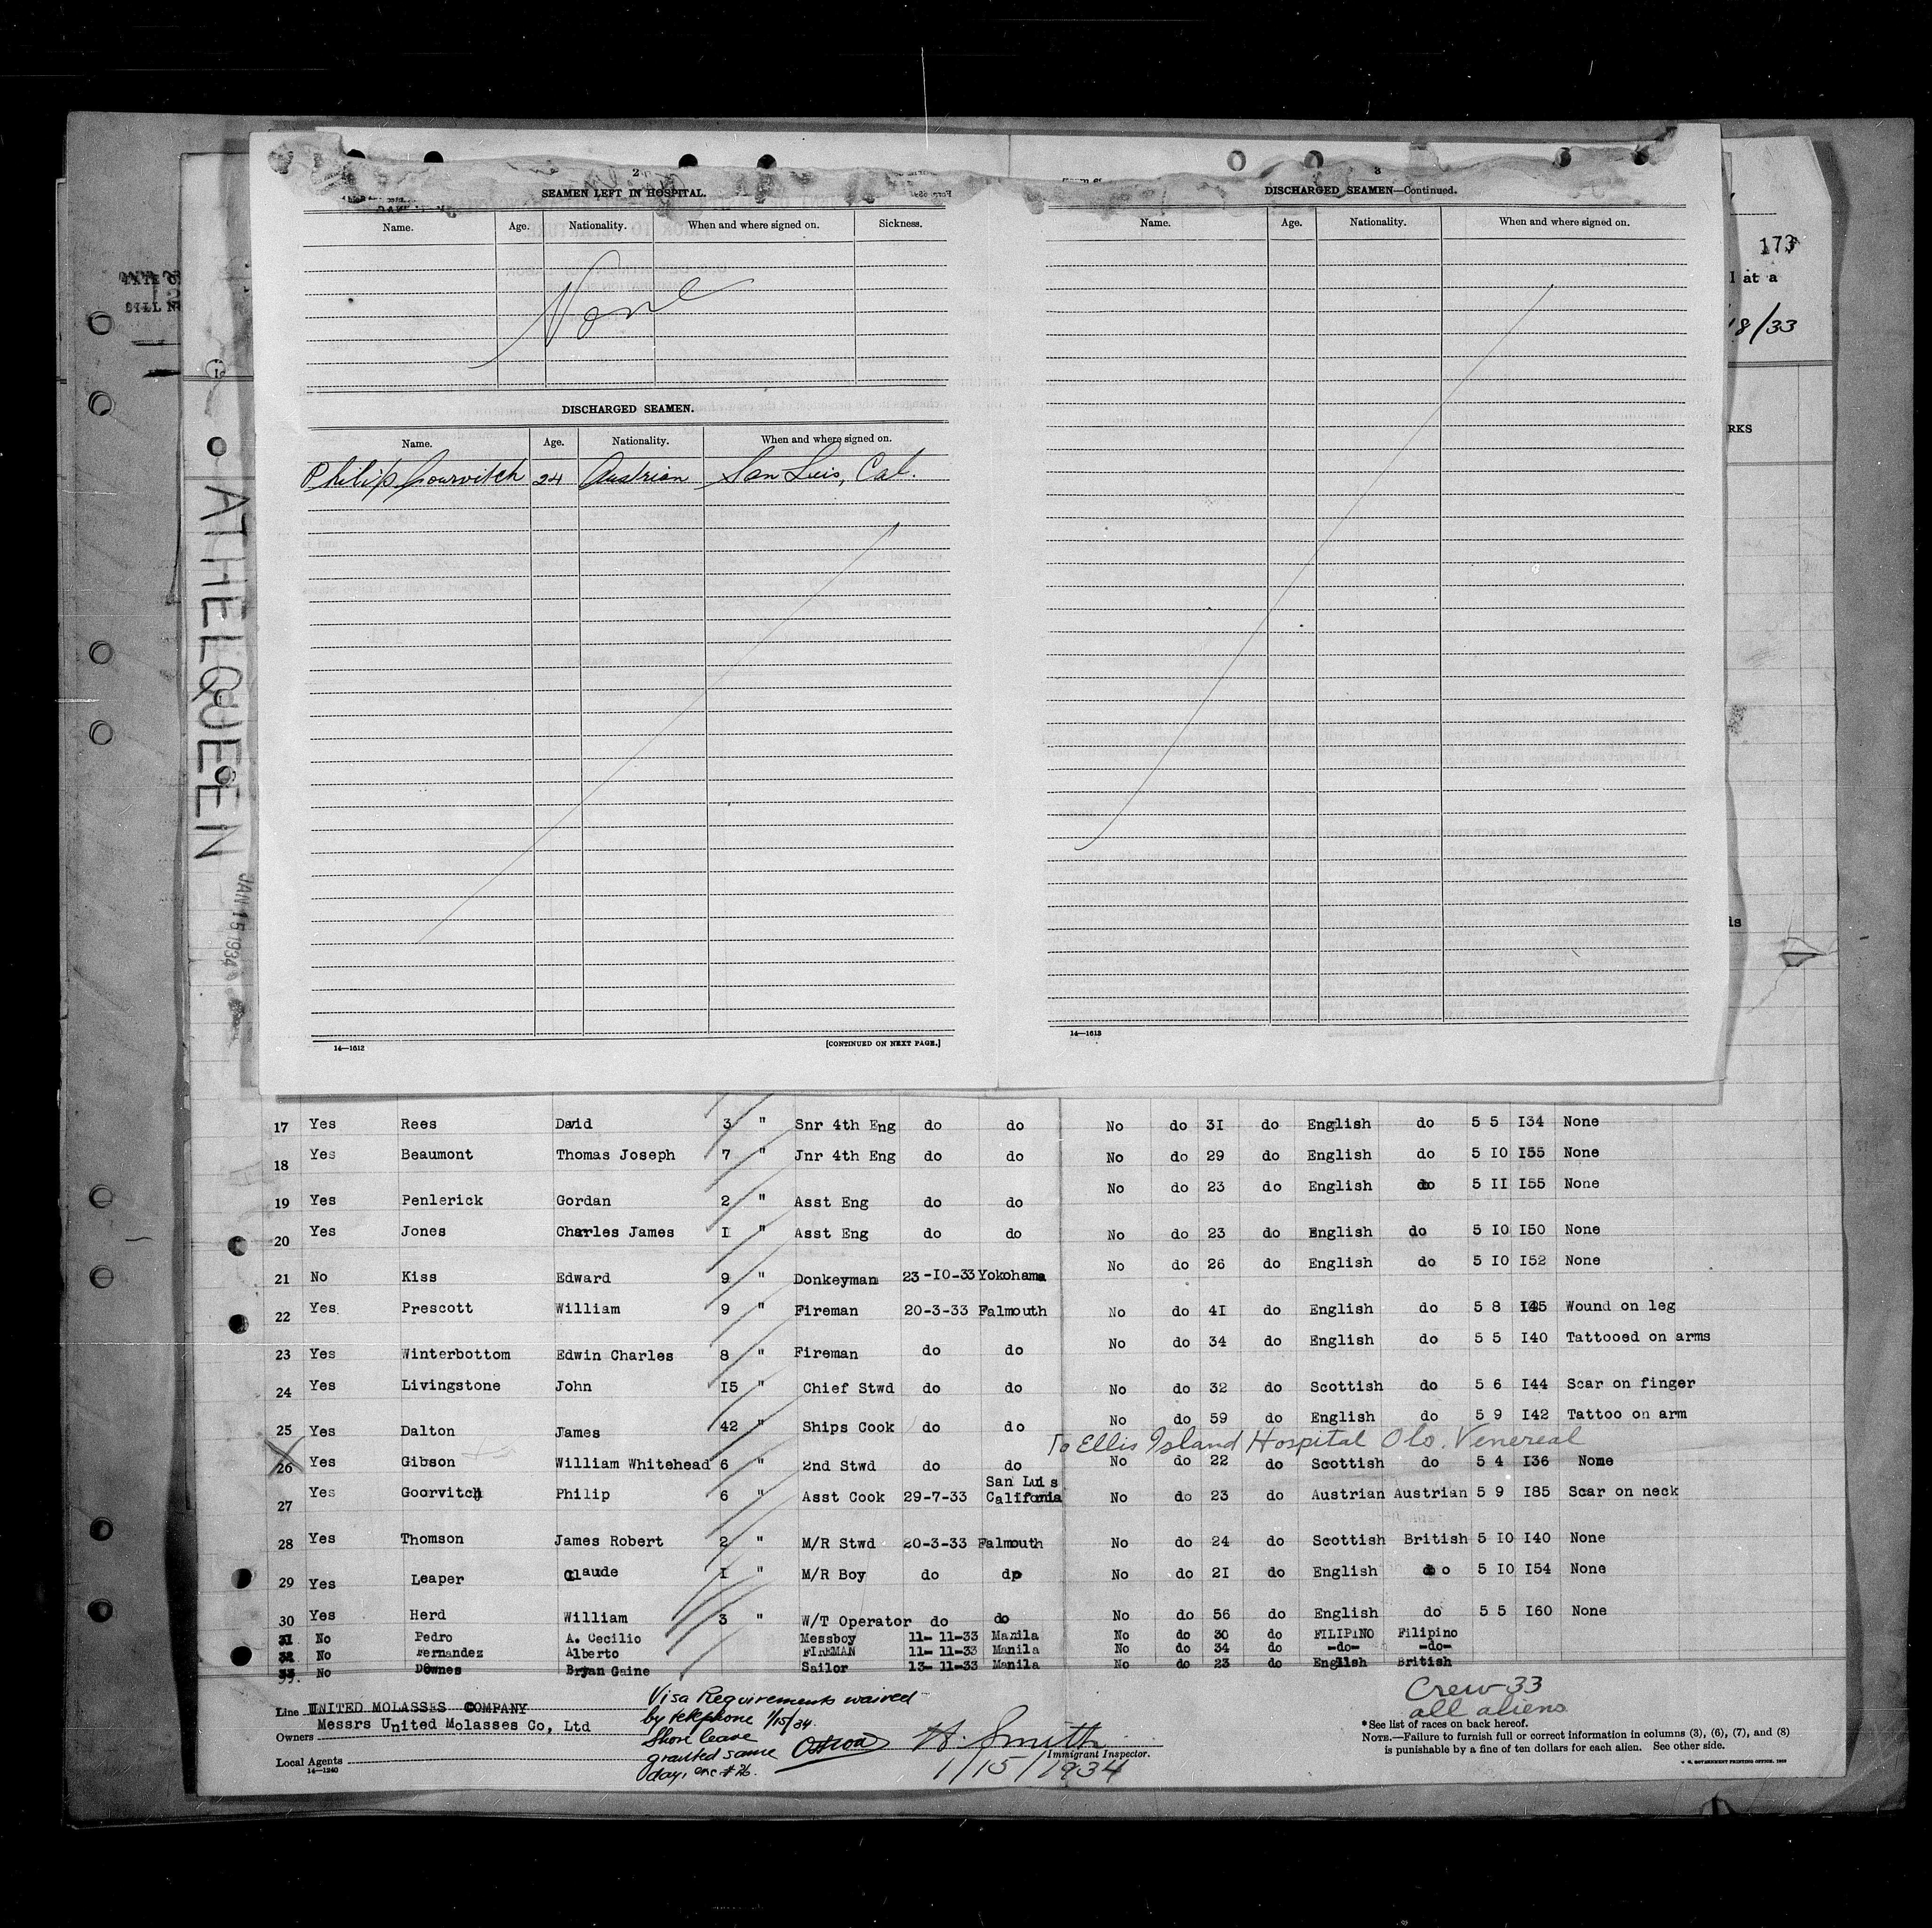 2
SEAMEN LEFT IN HOSPITAL.
Name. Age. Nationality. When and where signed on. Sickness.
None
DISCHARGED SEAMEN.
Name. Age. Nationality. When and where signed on.
Philip Gourvitch 24 Austrian San Luis, Cal.
14—1612 [CONTINUED ON NEXT PAGE.]
3
DISCHARGED SEAMEN—Continued.
Name. Age. Nationality. When and where signed on.
14—1613
173
l at a
18/33
RKS
is
ATHELQUEEN
JAN 15 1934
17 Yes Rees David 3 " Snr 4th Eng do do No do 31 do English do 5 5 134 None
18 Yes Beaumont Thomas Joseph 7 " Jnr 4th Eng do do No do 29 do English do 5 10 155 None
19 Yes Penlerick Gordan 2 " Asst Eng do do No do 23 do English do 5 11 155 None
20 Yes Jones Charles James 1 " Asst Eng do do No do 23 do English do 5 10 150 None
21 No Kiss Edward 9 " Donkeyman 23-10-33 Yokohama No do 26 do English do 5 10 152 None
22 Yes Prescott William 9 " Fireman 20-3-33 Falmouth No do 41 do English do 5 8 Wound on leg
23 Yes Winterbottom Edwin Charles 8 " Fireman do do No do 34 do English do 5 5 140 Tattooed on arms
24 Yes Livingstone John 15 " Chief Stwd do do No do 32 do Scottish do 5 6 144 Scar on finger
25 Yes Dalton James 42 " Ships Cook do do No do 59 do English do 5 9 142 Tattoo on arm
To Ellis Island Hospital Obs. Venereal
26 Yes Gibson William Whitehead 6 " 2nd Stwd do do No do 22 do Scottish do 5 4 136 None
27 Yes Goorvitch Philip 6 " Asst Cook 29-7-33 San Luis California No do 23 do Austrian Austrian 5 9 185 Scar on neck
28 Yes Thomson James Robert 2 " M/R Stwd 20-3-33 Falmouth No do 24 do Scottish British 5 10 140 None
29 Yes Leaper Claude 1 " M/R Boy do do No do 21 do English do 5 10 154 None
30 Yes Herd William 3 " W/T Operator do do No do 56 do English do 5 5 160 None
31 No Pedro A. Cecilio Messboy 11-11-33 Manila No do 30 do FILIPINO Filipino
32 No Fernandez Alberto FIREMAN 11-11-33 Manila No do 34 do -do- -do-
33. No Downes Bryan Gaine Sailor 13-11-33 Manila No do 23 do English British
Line UNITED MOLASSES COMPANY
Owners Messrs United Molasses Co, Ltd
Local Agents
14—1240
Visa Requirements waived
by telephone 1/15/34.
Shore leave
granted same
day, exc #26.
H. Smith
Immigrant Inspector.
1/15/1934
Crew 33
all aliens
*See list of races on back hereof.
NOTE.—Failure to furnish full or correct information in columns (3), (6), (7), and (8)
is punishable by a fine of ten dollars for each alien. See other side.
U. S. GOVERNMENT PRINTING OFFICE